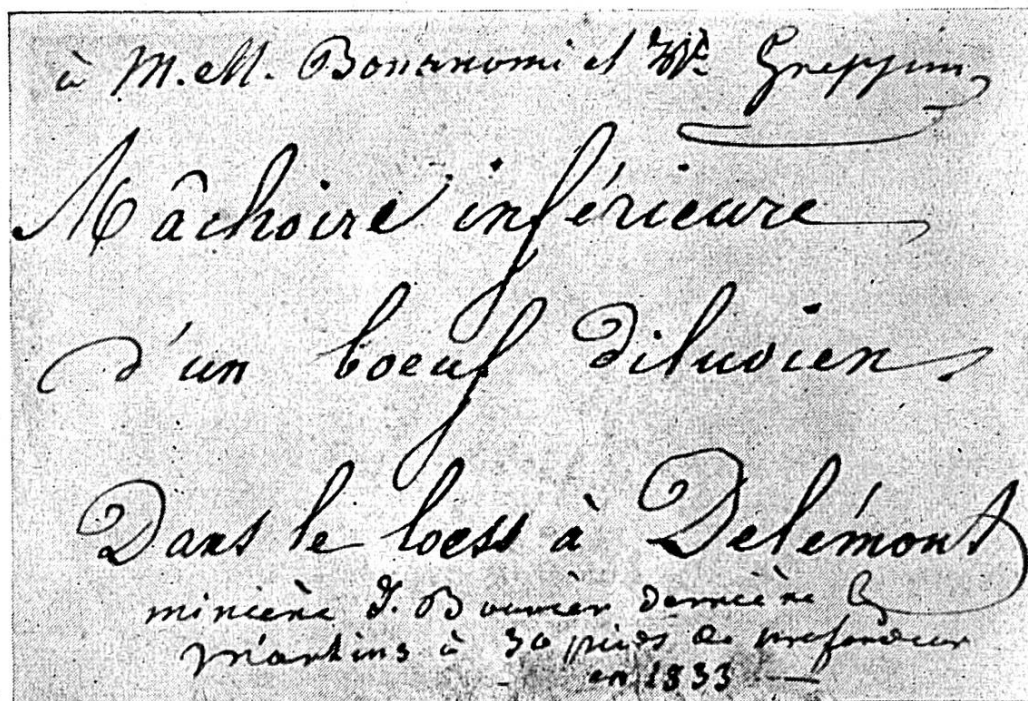 à M.M. Bonanomi et Dr. Greppin
Mâchoire inférieure
d'un boeuf diluvien
Dans le loess à Delémont
minière J. Bouvier derrière
à 30 pieds de profondeur
en 1833